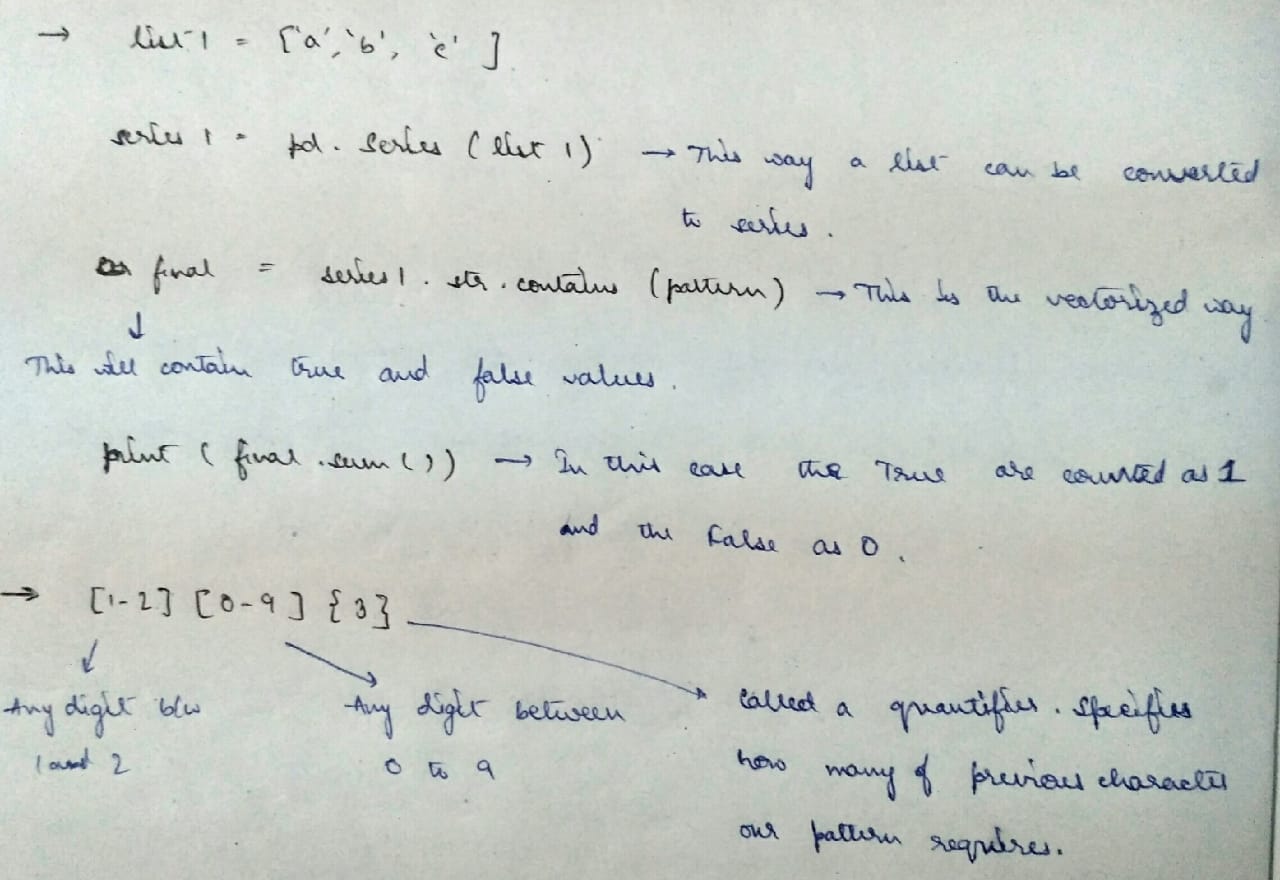 → list 1 = ['a', 'b', 'c' ]
series 1 = pd. Series (list 1) → This way a list can be converted
to series.
final = series1. str. contains (pattern) → This is the vectorized way
↓
This will contain true and false values.
print ( final .sum ( )) → In this case the True are counted as 1
and the False as 0.
→ [1-2] [0-9] {3}
Any digit b/w Any digit between called a quantifier. Specifies
1 and 2 0 to 9 how many of previous character
our pattern requires.